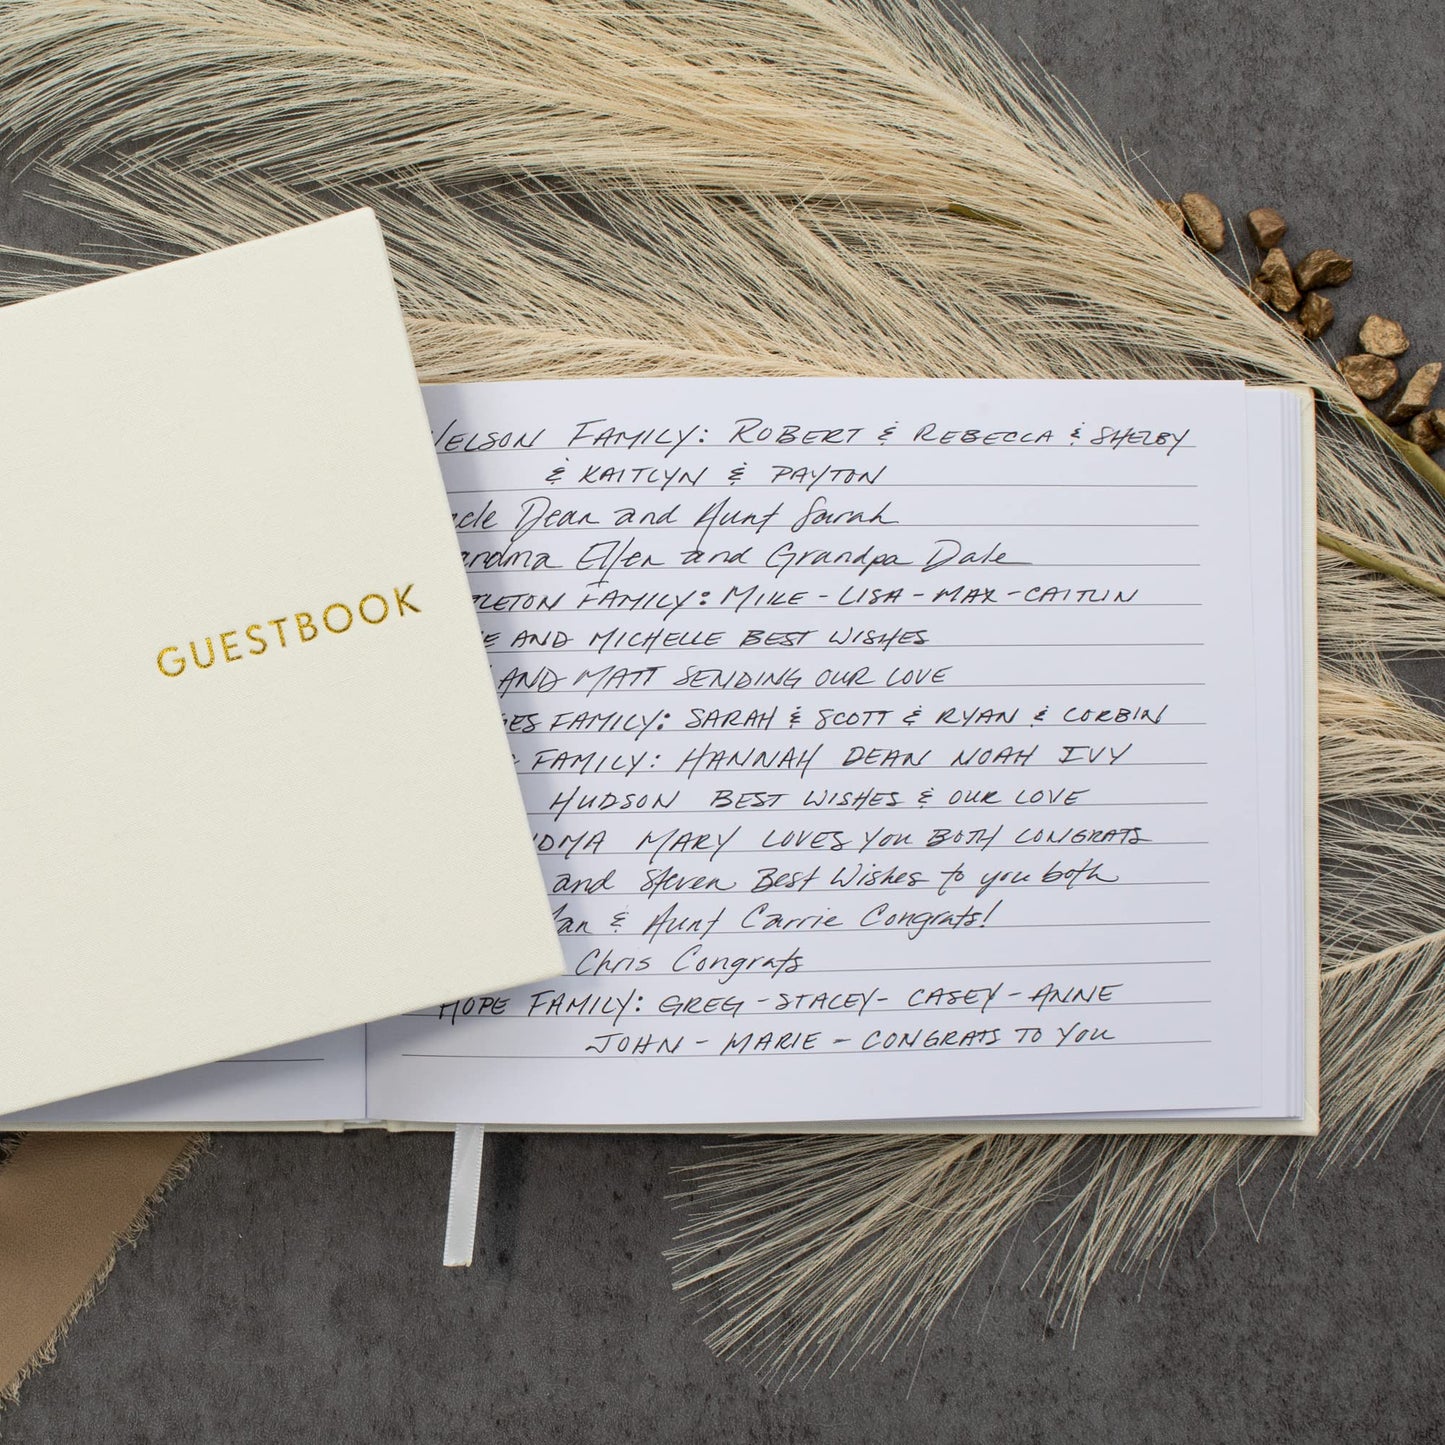 GUESTBOOK
NELSON FAMILY: ROBERT & REBECCA & SHELBY
& KAITLYN & PAYTON
Dean and Aunt Sarah
Ellen and Grandpa Dale
FAMILY: MIKE - LISA - MAX - CAITLIN
AND MICHELLE BEST WISHES
AND MATT SENDING OUR LOVE
FAMILY: SARAH & SCOTT & RYAN & CORBIN
FAMILY: HANNAH DEAN NOAH IVY
HUDSON BEST WISHES & OUR LOVE
MARY LOVES YOU BOTH CONGRATS
and Steven Best Wishes to you both
& Aunt Carrie Congrats!
Chris Congrats
HOPE FAMILY: GREG - STACEY - CASEY - ANNE
JOHN - MARIE - CONGRATS TO YOU